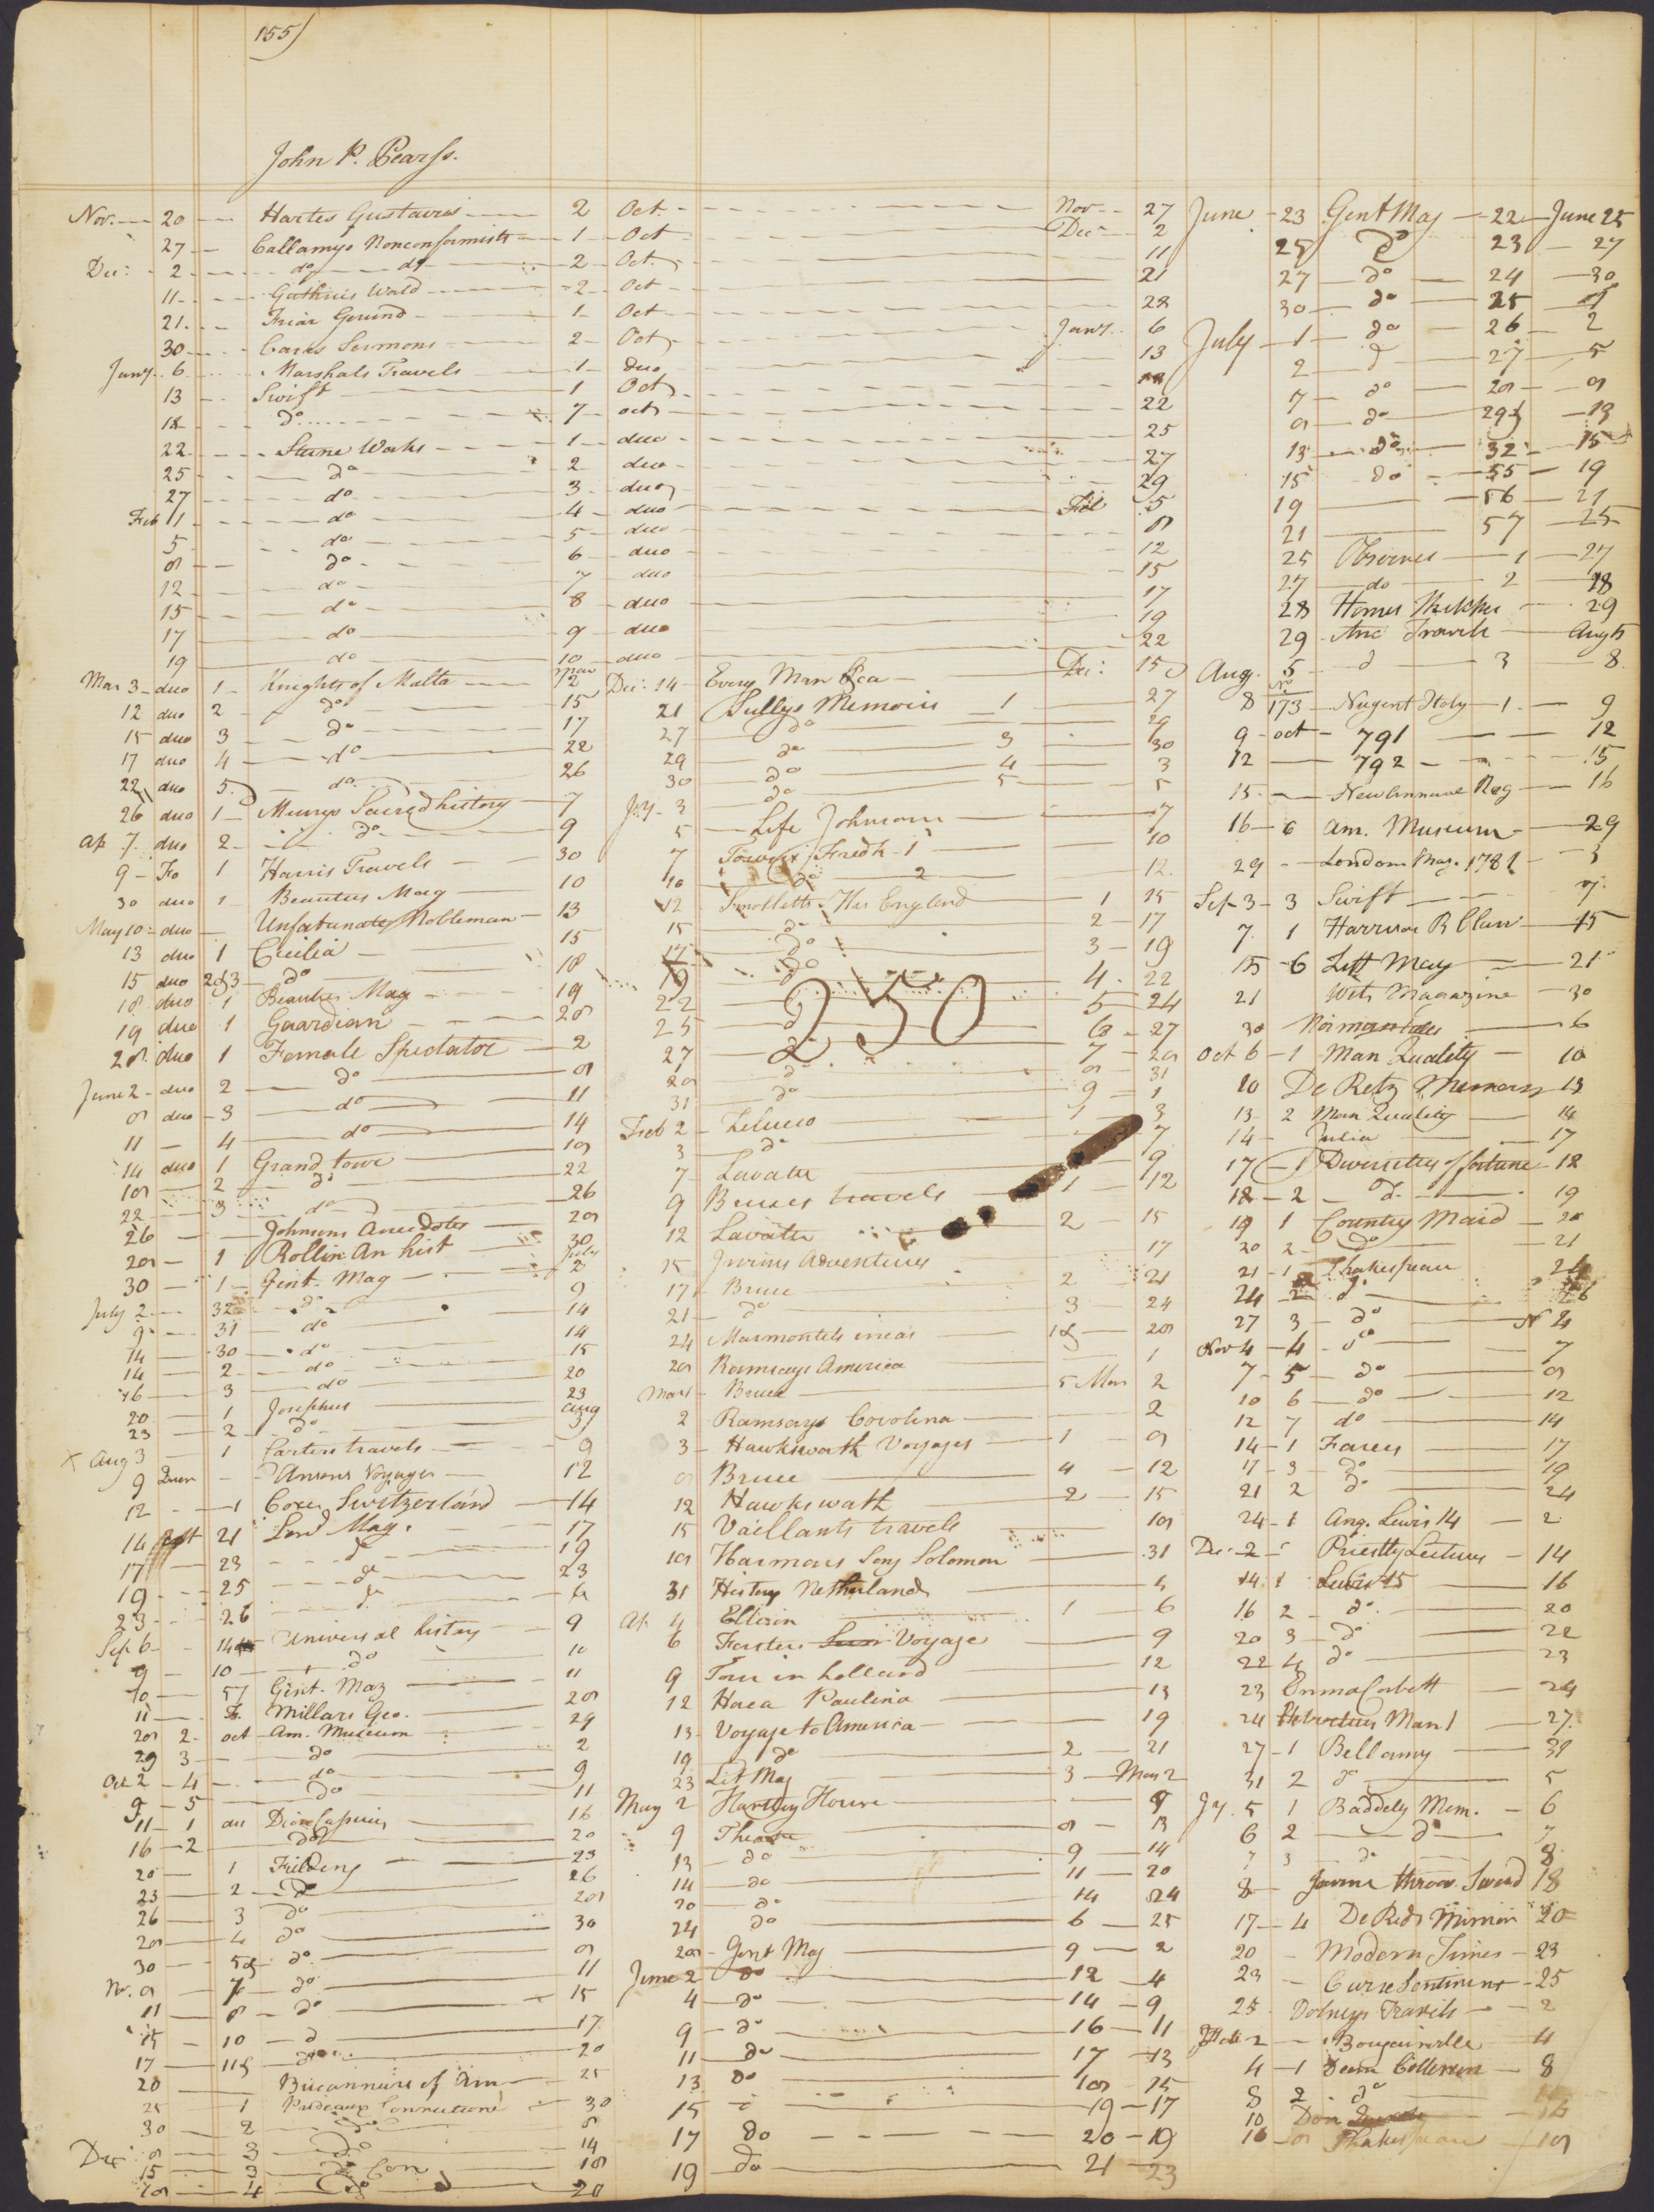 155)
John P. Pearss.
Nov. 20 Hartes Gustavus 2 Oct. Nov 27
27 Callamys Nonconformists 1 Oct Dec 2
Dec: 2 do do 2 Oct. 11
11 Guthries World 2 Oct 21
21 Friar Gerund 1 Oct 28
30 Carrs Sermons 2 Oct Jany. 6
Jany. 6 Marshals Travels 1 duo 13
13 Swift 1 Oct 18
18 do 7 oct 22
22 Sterne Works 1 duo 25
25 do 2 duo 27
27 do 3 duo 29
Feb 1 do 4 duo Feb 5
5 do 5 duo 8
8 do 6 duo 12
12 do 7 duo 15
15 do 8 duo 17
17 do 9 duo 19
19 do 10 duo 22
Mar 3 duo 1 Knights of Malta Mar 12
12 duo 2 do 15
15 duo 3 do 17
17 duo 4 do 22
22 duo 5 do 26
26 duo 1 Murrys Sacred history 7
Ap. 7 duo 2 do 9
9 Fo 1 Harris Travels 30
30 duo 1 Beauties Mag 10
May 10 duo Unfortunate Nobleman 13
13 duo 1 Cecilia 15
15 duo 2&3 do 18
18 duo 1 Beauties Mag 19
19 duo 1 Guardian 28
28 duo 1 Female Spectator 2
June 2 duo 2 do 8
8 duo 3 do 11
11 4 do 14
14 duo 1 Grand tour 18
18 2 do 22
22 3 do 26
26 Johnsons Anecdotes 28
28 1 Rollin An hist 30
30 1 Gent. Mag July 2
July 2 32 do 9
9 31 do 14
14 30 do 14
14 2 do 15
16 3 do 20
20 1 Josephus 23
23 2 do Aug 3
X Aug 3 1 Carters travels 9
9 Ansons Voyages 12
12 1 Coxes Switzerland 14
14 21 Lond Mag. 17
17 23 do 19
19 25 do 23
23 26 do 6
Sep 6 14 Universal history 9
9 10 do 10
10 57 Gent. Mag 11
11 Millars Geo. 28
28 2 oct Am. Museum 29
29 3 do 2
Oct 2 4 do 9
9 5 do 11
11 1 Dion Cassius 16
16 2 do 20
20 1 Fielding 23
23 2 do 26
26 3 do 28
28 4 do 30
30 5& do 8
Nr. 8 7 do 11
11 8 do 15
15 10 d 17
17 11& do 20
20 Bucanniers of Am 25
25 1 Prideaux Connections 30
30 2 do 8
Dec 8 3 do 14
15 3 do Con 18
18 4 do 20
Dec: 14 Every Man Dec: 15
21 Sullys Memoirs 1 27
27 do 29
29 do 3 30
30 do 4 3
Jay. 3 do 5 5
5 Life Johnson 7
7 Towers Fredk 1 10
10 do 2 12
12 Smolletts His England 1 15
15 do 2 17
17 do 3 19
19 do 4 22
250
22 d 5 24
25 d 6 27
27 d 7 28
28 d 8 31
31 do 9 1
Feb 2 Zeluco 1 3
3 do 7
7 Lavater 9
9 Bruces travels 1 12
12 Lavater 2 15
15 Irwins Adventures 17
17 Bruce 2 21
21 do 3 24
24 Marmontels incas 1& 28
28 Ramsays America 1
Mar 1 Bruce 5 Mar 2
2 Ramsays Carolina 2
3 Hawkswoath Voyages 1 8
8 Bruce 4 12
12 Hawkswath 2 15
15 Vaillants travels 18
18 Harmons Song Solomon 31
31 History Netherlands 4
Ap. 4 Ellisin 1 6
6 Forsters Voyage 9
9 Tour in holland 12
12 Horea Paulina 13
13 Voyage to America 19
19 do 2 21
23 Lit Mag 3 May 2
May 2 Hartley House 9
9 Theatre 8 13
13 do 9 14
14 do 11 20
20 do 14 24
24 do 6 25
28 Gent Mag 9 2
June 2 do 12 4
4 do 14 9
9 do 16 11
11 do 17 13
13 do 18 15
15 19 17
17 do 20 19
19 do 21 23
June 23 Gent Mag 22 June 25
25 do 23 27
27 do 24 30
30 do 25 1
July 1 do 26 2
2 d 27 5
7 do 28 8
8 do 29& 13
13 do 32 15
15 do 55 19
19 56 21
21 57 25
25 Observer 1 27
27 do 2 28
28 Homes Sketches 29
29 Anc Travels Aug 5
Aug. 5 d 3 8
8 No 173 Nugent Italy 1 9
9 oct 791 12
12 792 15
15 New Annual Reg 16
16 6 Am. Museum 29
29 London Mag. 1781 3
Sep 3 3 Swift 7
7 1 Harrison 15
15 6 Litt Mag 21
21 Wits Magazine 30
30 6
Oct 6 1 Man Quality 10
10 De Retz Memoirs 13
13 2 Man Quality 14
14 Julia 17
17 1 Diversities of fortune 18
18 2 d 19
19 1 Country Maid 20
20 2 do 21
21 1 Shakespear 24
24 2 do 26
27 3 do N 4
Nov 4 4 do 7
7 5 do 8
10 6 do 12
12 7 do 14
14 1 Farces 17
17 3 do 19
21 2 do 24
24 1 Anq. Lewis 14 2
Dec. 2 Priestly Lectures 14
14 1 Lewis 15 16
16 2 do 20
20 3 do 22
22 4 do 23
23 Emma Corbett 24
24 Helvetius Man 1 27
27 1 Bellamy 31
31 2 do 5
Jy. 5 1 Baddely Mem. 6
6 2 d 7
7 3 do 8
8 18
17 4 De Reds Mimoir 20
20 Modern Times 23
23 Curse Sentiment 25
25 Volneys Travels 2
2 Bougainville 4
4 1 Dean Colleraine 8
8 2 do
10 Don
16 8 Shakespear 18